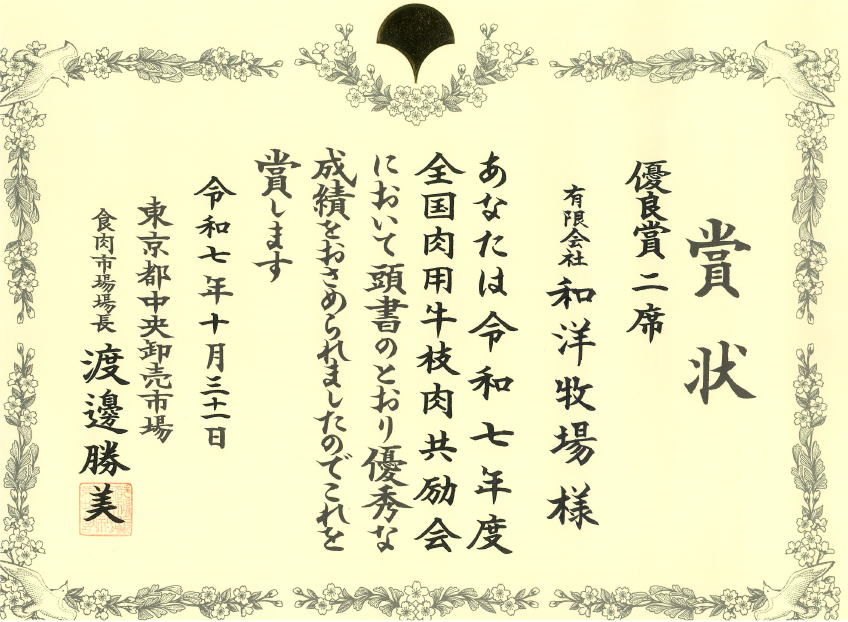 賞状
優良賞二席
有限会社 和洋牧場 様
あなたは令和七年度
全国肉用牛枝肉共励会
において頭書のとおり優秀な
成績をおさめられましたのでこれを
賞します
令和七年十月三十一日
東京都中央卸売市場
食肉市場場長 渡邊勝美